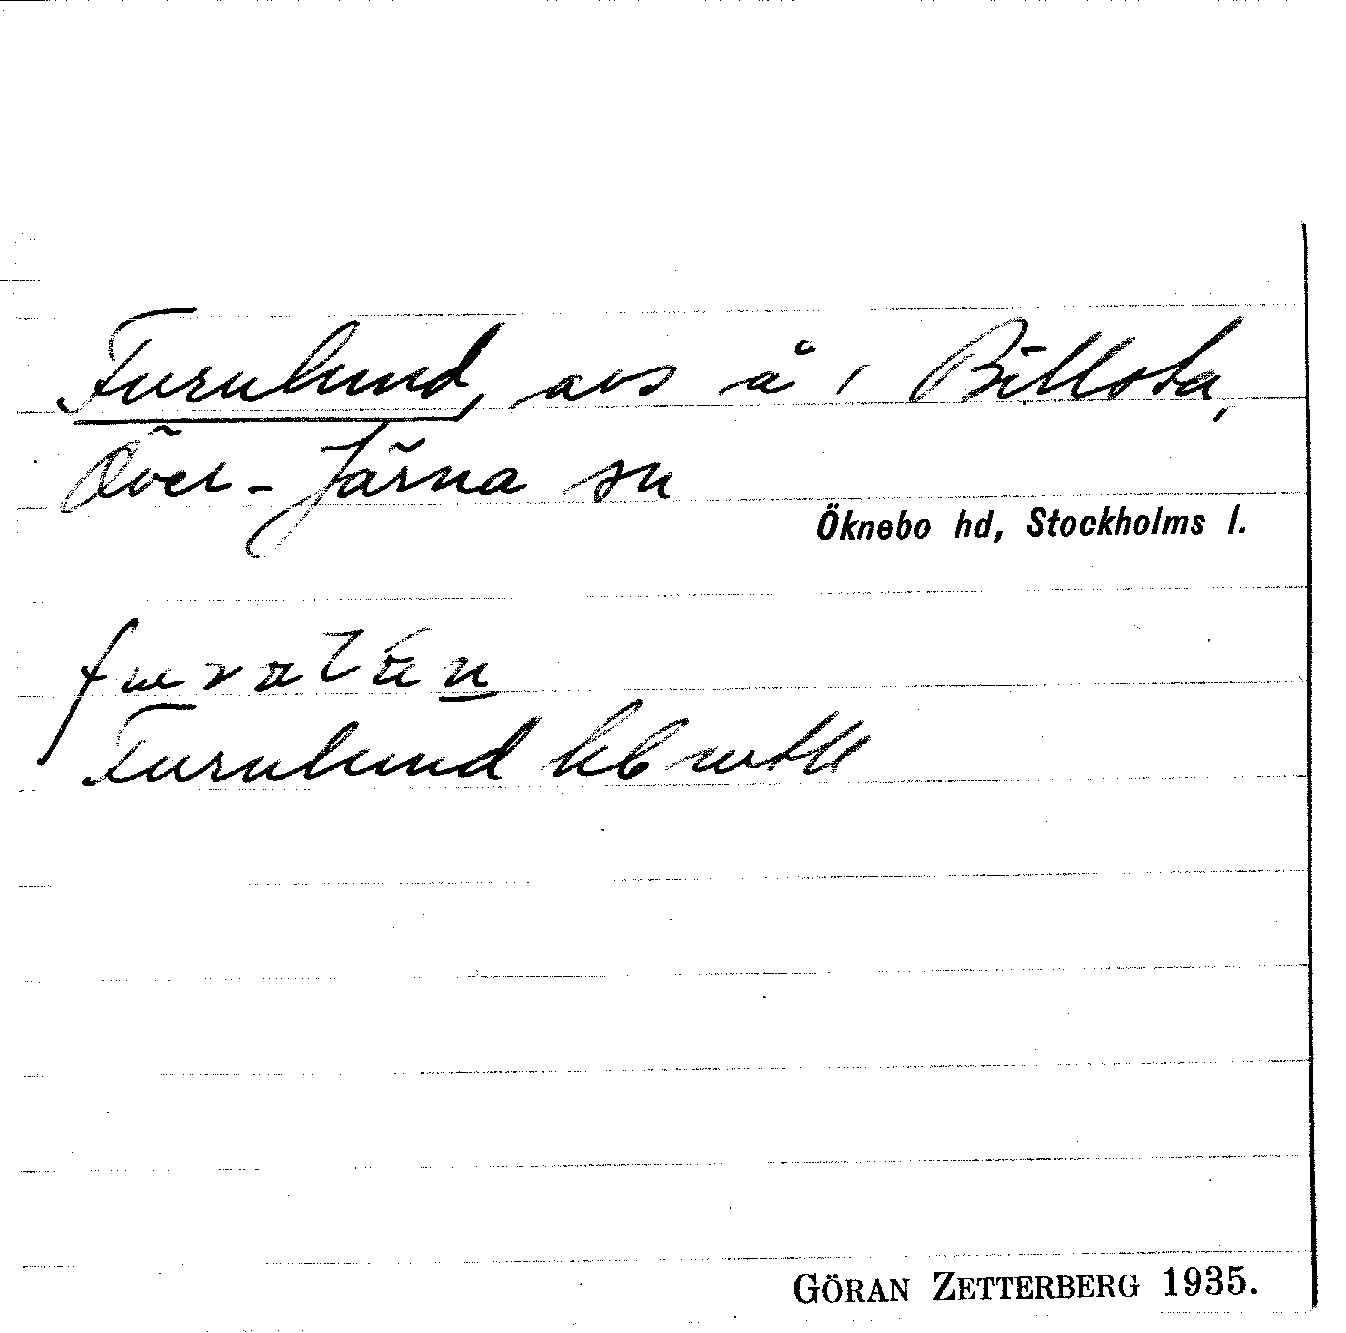 Furulund, avs å i Billsta,
Över-Järna sn
Öknebo hd, Stockholms l.
Furulund
GÖRAN ZETTERBERG 1935.